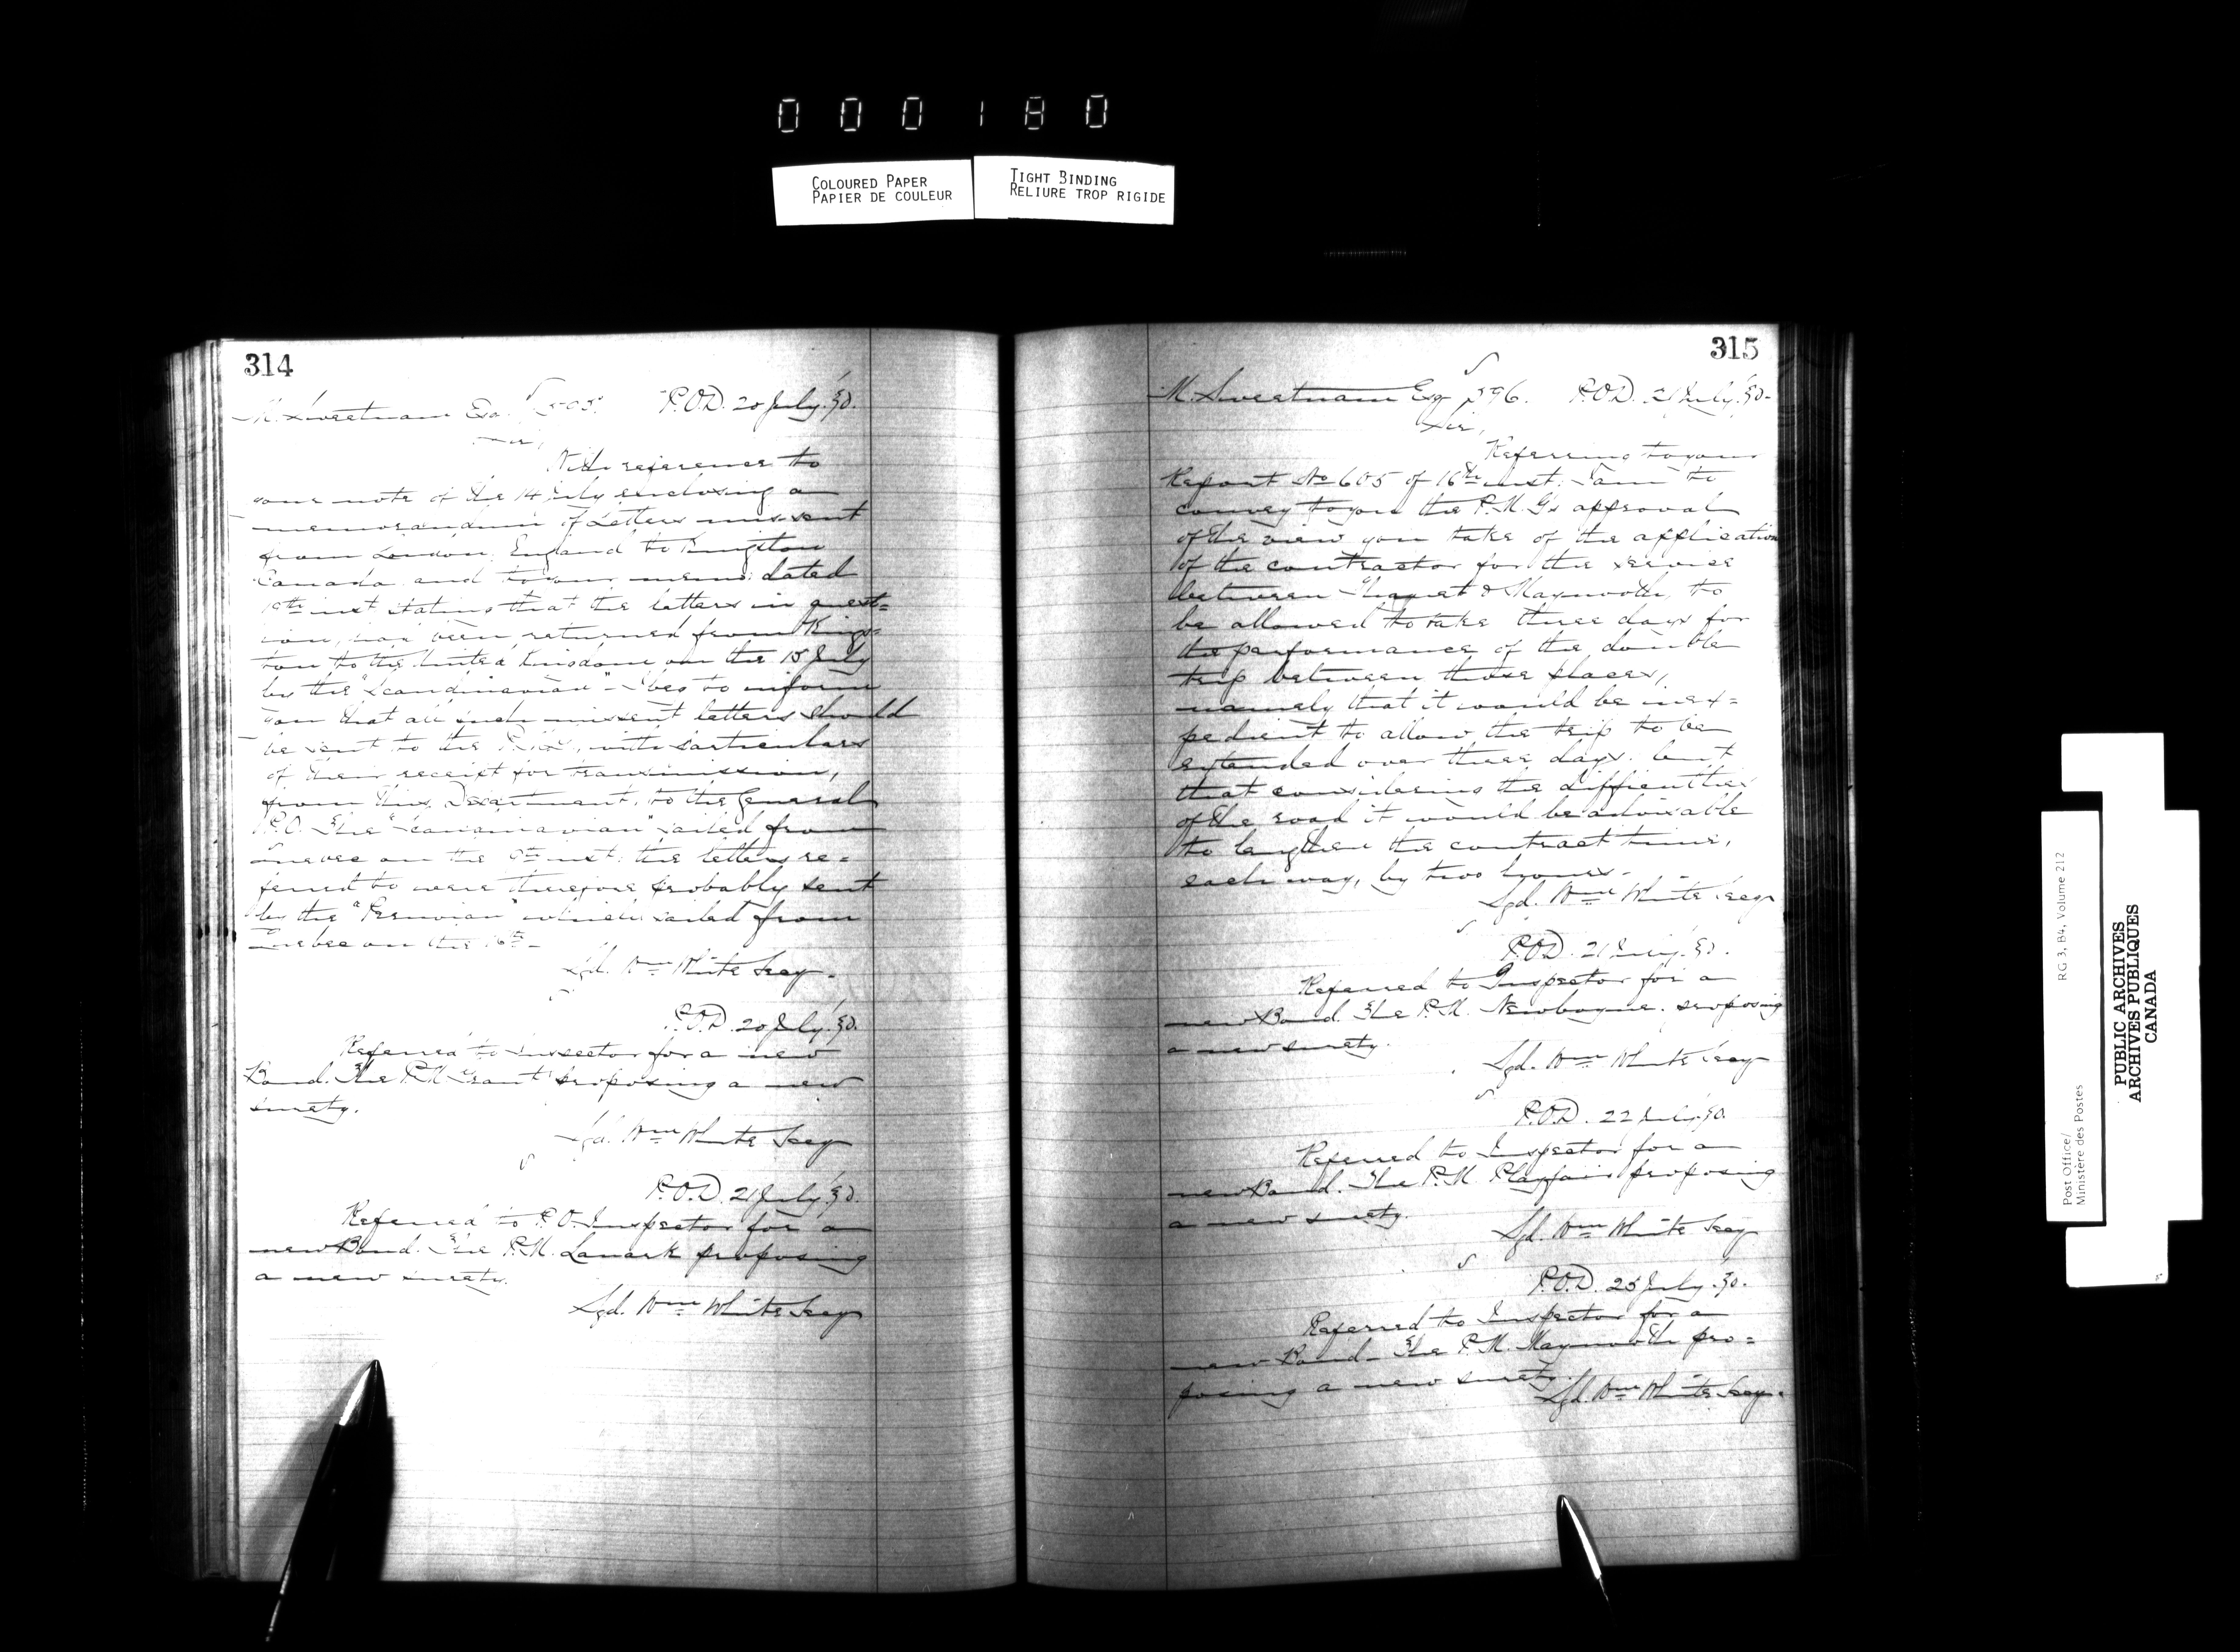 000180
COLOURED PAPER
PAPIER DE COULEUR
TIGHT BINDING
RELIURE TROP RIGIDE
314
M. Sweetnam Esq. P.O.D. 20 July '80.
Sir,
With reference to
your note of the 14 July enclosing a
memorandum of Letters mis-sent
from London, England to Kingston
Canada and to your memo: dated
inst stating that the letters in quest=
ion, had been returned from Kings=
ton to the United Kingdom on the 15 July
by the "Scandinavian" - I beg to inform
you that all such missent letters should
be sent to the with particulars
of their receipt for transmission,
from this Department, to the General
P.O. The "Scandinavian" sailed from
Quebec on the inst: the letters re=
ferred to were therefore probably sent
by the "Peruvian" which sailed from
Quebec on the 16th -
Sgd. Wm White Secy.
P.O.D. 20 July '80.
Referred to Inspector for a new
Bond. The P.M. Grant proposing a new
surety.
Sgd. Wm White Secy
P.O.D. 21 July '80.
Referred to P.O. Inspector for a
new Bond. The P.M. Lanark proposing
a new surety.
Sgd. Wm White Secy
315
M. Sweetnam Esq 596. P.O.D. 21 July '80-
Sir,
Referring to your
Report No 605 of 16th inst: I am to
convey to you the P.M.G's approval
of the view you take of the application
of the contractor for the service
between & Maynooth, to
be allowed to take three days for
the performance of the double
trip between those places,
namely that it would be inex=
pedient to allow the trip to be
extended over three days. but
that considering the difficulties
of the road it would be advisable
to lengthen the contract time,
each way, by two hours -
Sgd. Wm White Secy
P.O.D. 21 July '80.
Referred to Inspector for a
new Bond. The P.M. Newboyne. proposing
a new surety.
Sgd. Wm White Secy
P.O.D. 22 July '80.
Referred to Inspector for a
new Bond. The P.M. Playfair proposing
a new surety.
Sgd. Wm White Secy
P.O.D. 23 July '80.
Referred to Inspector for a
new Bond - The P.M. Maynooth pro=
posing a new surety.
Sgd. Wm White Secy.
Post Office/ RG 3, B4, Volume 212
Ministère des Postes
PUBLIC ARCHIVES
ARCHIVES PUBLIQUES
CANADA